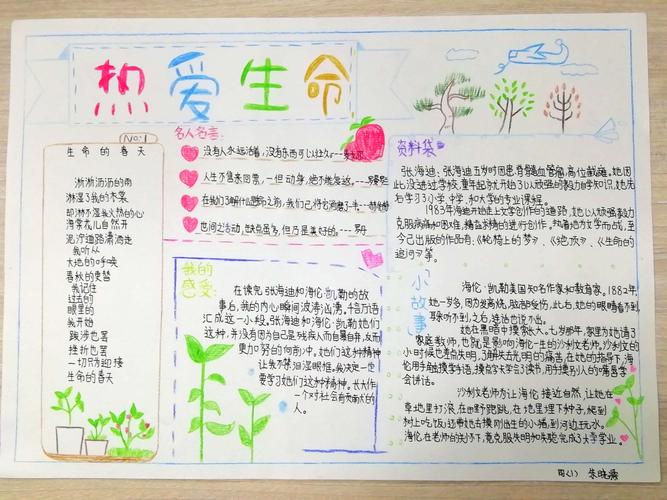 热爱生命
No:1
生命的春天
淅淅沥沥的雨
淋湿了我的衣裳
却淋不湿我火热的心
海棠花儿自然开
泥泞道路潇洒走
我听从
大地的呼唤
春秋的更替
我记住
过去的
眼里的
我开始
跋涉也罢
挫折也罢
一切只为迎接
生命的春天
名人名言:
没有人永远活着,没有东西可以经久
人生不售来回票,一但动身,绝不能复返。
在我们了解什么是生命之前,我们已将它消磨了一半
世间之活动,缺点虽多,但仍是美好的。---罗丹
我的
感受:
在读完张海迪和海伦·凯勒的故
事后,我的内心瞬间波涛汹涌,千言万语
汇成这一小段。张海迪和海伦·凯勒她们
这种,并没有因为自己是残疾人而自暴自弃,反而
更加努力的向前冲。她们这种精神
让我不禁泪湿眼眶,我决定一定
要学习她们这种精神。长大作
一个对社会有贡献的
人。
资料袋
张海迪:张海迪五岁时因患脊髓血管瘤,高位截瘫,她因
此没进过学校,童年起就开始以顽强的毅力自学知识,她先
后学习了小学、中学、和大学的专业课程。
1983年海迪开始走上文学创作的道路,她以顽强毅力
克服病痛和困难,精益求精的进行创作,执着地为文学而战,至
今已出版的作品有:《轮椅上的梦》、《绝顶》、《生命的
追问》等。
小故事
海伦·凯勒美国知名作家和教育家。1882年,
她一岁多,因为发高烧,脑部受伤,此后,她的眼睛看不到,
耳听不到,之后,连话也说不出。
她在黑暗中摸索长大。七岁那年,家里为她请了
家庭教师,也就是影响海伦一生的沙利文老师。沙利文的
小时候也差点失明,了解失去光明的痛苦。在她的指导下,海
伦用手触摸学手语,摸点字学会了读书,用手摸别人的嘴唇学
会讲话。
沙利文老师为了让海伦接近自然,让她在
草地里打滚,在田野跑跳,在地里埋下种子,爬到
树上吃饭;还带她去摸刚出生的小猪,到河边玩水。
海伦在老师的关怀下,竟克服失明和失聪,完成了大学学业。
四(1) 朱晓